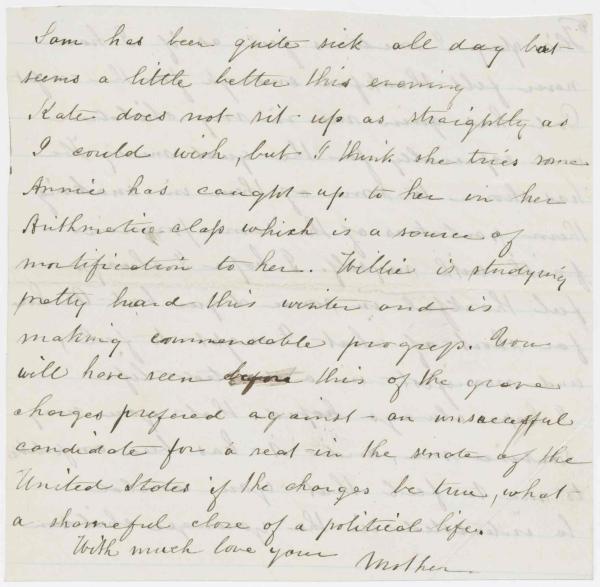 Sam has been quite sick all day but
seems a little better this evening
Kate does not sit up as straightly as
I could wish, but I think she tries some
Annie has caught up to her in her
Arithmetic class which is a source of
mortification to her. Willie is studying
pretty hard this winter and is
making commendable progress. You
will have seen before this of the grave
charges prefered against an unsuccessful
candidate for a seat in the senate of the
United States if the charges be true, what
a shameful close of a political life.
With much love your Mother.